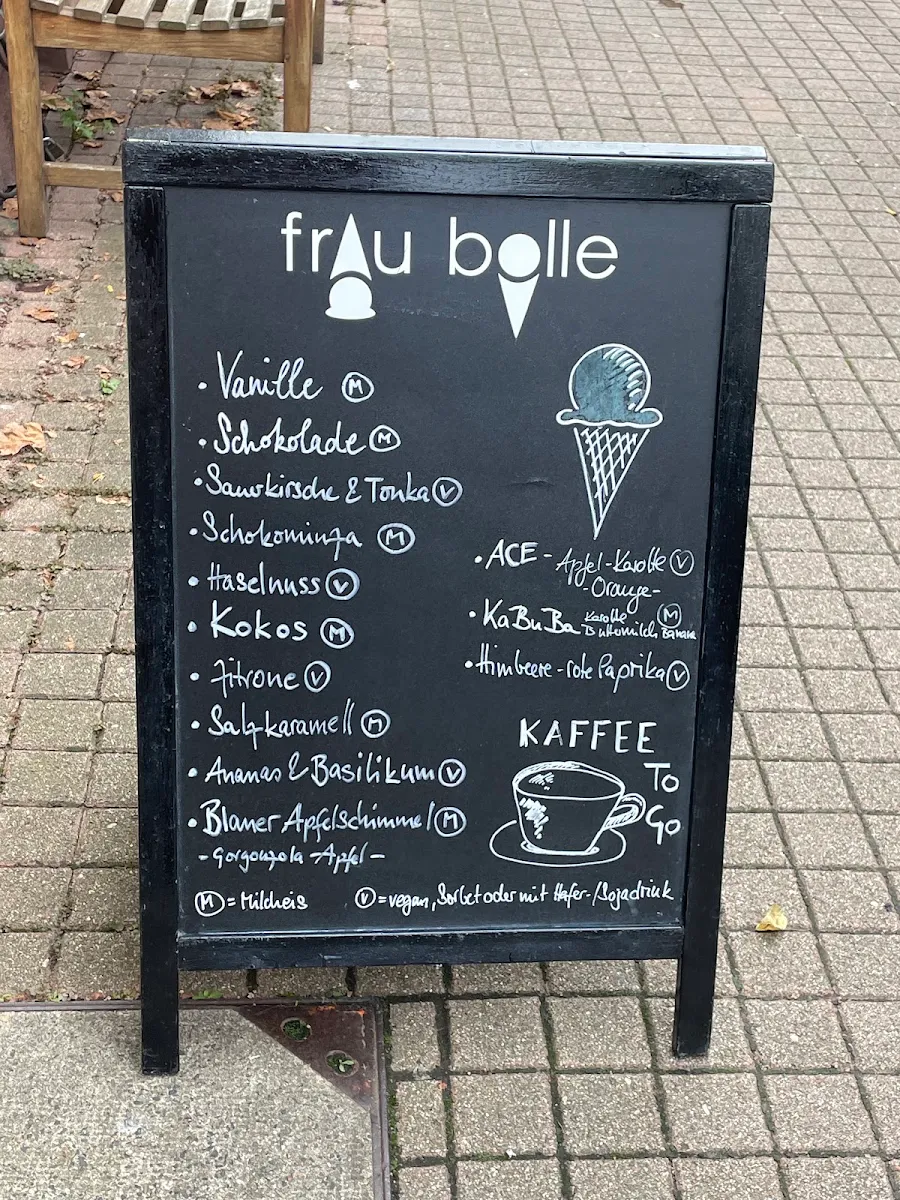 frau bolle
• Vanille Ⓜ
• Schokolade Ⓜ
• Sauerkirsche & Tonka Ⓥ
• Schokominza Ⓜ
• Haselnuss Ⓥ
• Kokos Ⓜ
• Zitrone Ⓥ
• Salzkaramell Ⓜ
• Ananas & Basilikum Ⓥ
• Blauer Apfelschimmel Ⓜ
- Gorgonzola - Apfel -
• ACE - Apfel - Karotte Ⓥ
- Orange -
• KaBuBa Karotte Ⓜ
Buttermilch Banane
• Himbeere - rote Paprika Ⓥ
KAFFEE
TO
GO
Ⓜ = Milcheis Ⓥ = vegan, Sorbet oder mit Hafer-/Sojadrink